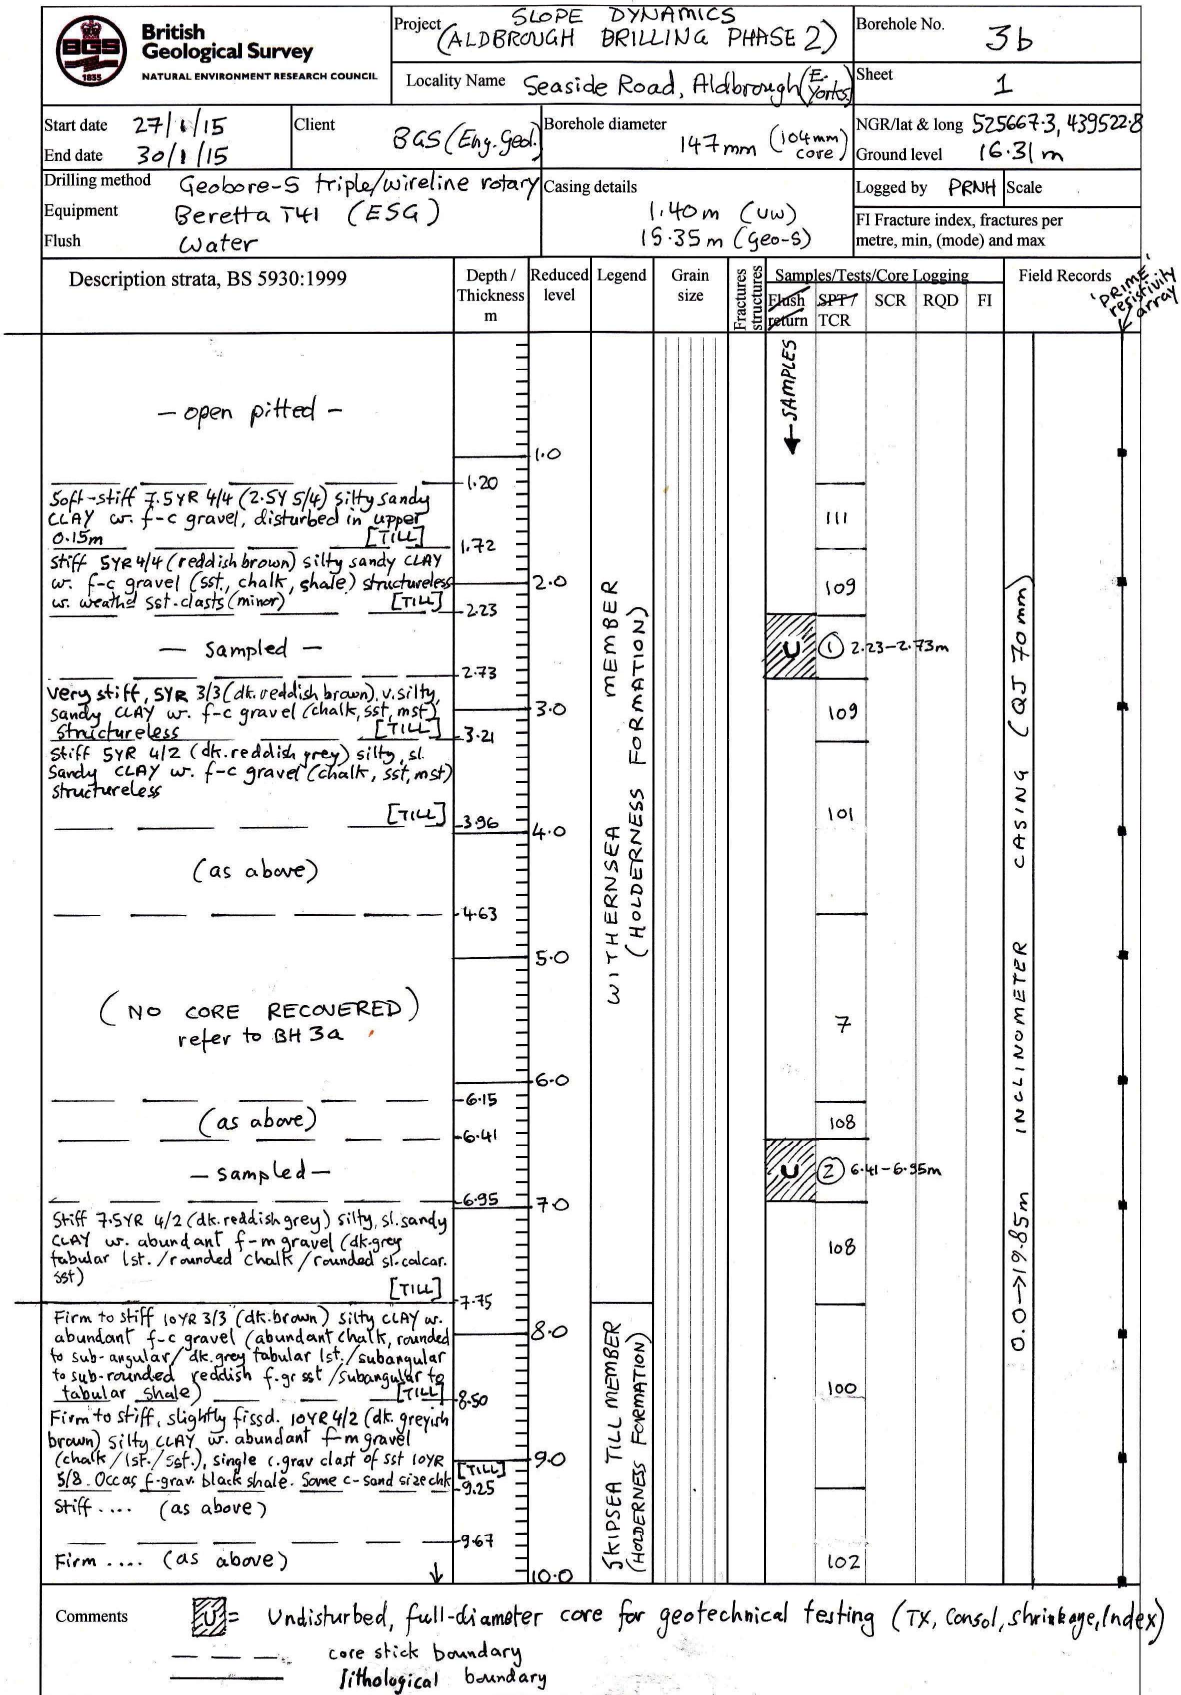 British
Geological Survey
NATURAL ENVIRONMENT RESEARCH COUNCIL
BGS
1835
Project SLOPE DYNAMICS
(ALDBROUGH DRILLING PHASE 2)
Borehole No. 3b
Locality Name Seaside Road, Aldbrough (E. Yorks)
Sheet 1
Start date 27/1/15
End date 30/1/15
Client BGS (Eng. Geol.)
Borehole diameter 147mm (104mm core)
NGR/lat & long 525667.3, 439522.8
Ground level 16.31 m
Drilling method Geobore-S triple/wireline rotary
Equipment Beretta T41 (ESG)
Flush Water
Casing details
1.40m (UW)
15.35m (Geo-S)
Logged by PRNH Scale
FI Fracture index, fractures per
metre, min, (mode) and max
Description strata, BS 5930:1999
Depth / Thickness m
Reduced level
Legend
Grain size
Fractures structures
Samples/Tests/Core Logging
Flush return
SPT/ TCR
SCR
RQD
FI
Field Records
'PRIME' resistivity array
SAMPLES
— open pitted —
1.0
1.20
Soft-stiff 7.5YR 4/4 (2.5Y 5/4) silty sandy
CLAY w. f-c gravel, disturbed in upper
0.15m [TILL]
111
1.72
Stiff 5YR 4/4 (reddish brown) silty sandy CLAY
w. f-c gravel (sst, chalk, shale) structureless
w. weathd sst-clasts (minor) [TILL]
2.0
109
2.23
— Sampled —
U 1 2.23-2.73m
2.73
Very stiff, 5YR 3/3 (dk. reddish brown). v. silty,
sandy CLAY w. f-c gravel (chalk, sst, mst)
structureless [TILL]
3.0
109
3.21
Stiff 5YR 4/2 (dk. reddish grey) silty, sl.
Sandy CLAY w. f-c gravel (chalk, sst, mst)
structureless
[TILL]
101
3.96
4.0
(as above)
4.63
5.0
(NO CORE RECOVERED)
refer to BH 3a
7
6.0
6.15
(as above)
108
6.41
— sampled —
U 2 6.41-6.95m
6.95
7.0
Stiff 7.5YR 4/2 (dk. reddish grey) silty, sl. sandy
CLAY w. abundant f-m gravel (dk. grey
tabular lst. / rounded chalk / rounded sl. calcar.
sst)
[TILL]
108
7.75
Firm to stiff 10YR 3/3 (dk. brown) silty CLAY w.
abundant f-c gravel (abundant chalk, rounded
to sub-angular / dk. grey tabular lst. / subangular
to sub-rounded reddish f. gr sst / subangular to
tabular shale) [TILL]
8.0
100
8.50
Firm to stiff, slightly fissd. 10YR 4/2 (dk. greyish
brown) silty CLAY w. abundant f-m gravel
(chalk / lst. / sst.), single c. grav clast of sst 10YR
5/8. Occas f-grav. black shale. Some c-sand size chk
[TILL]
9.0
9.25
Stiff .... (as above)
9.67
Firm .... (as above)
102
10.0
WITHERNSEA MEMBER
(HOLDERNESS FORMATION)
SKIPSEA TILL MEMBER
(HOLDERNESS FORMATION)
0.0→19.85m INCLINOMETER CASING (QJ 70mm)
Comments
U = Undisturbed, full-diameter core for geotechnical testing (TX, Consol, Shrinkage, Index)
core stick boundary
lithological boundary